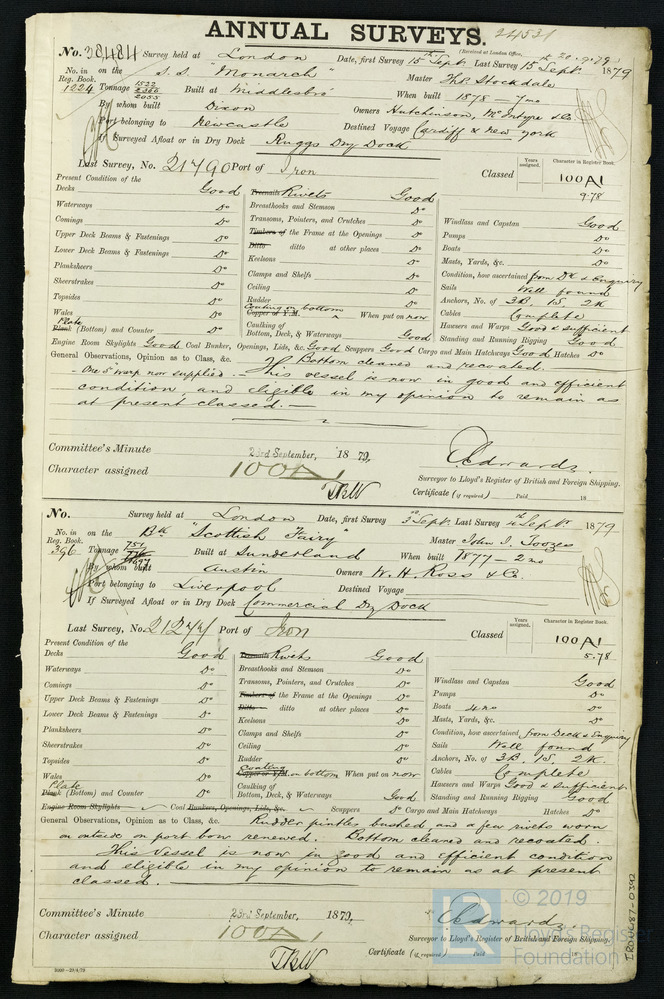 ANNUAL SURVEYS.
(Received at London Office,
No. 38484 Survey held at London Date, first Survey 15th Sept. Last Survey 15th Sept. 1879
No. in on the S.S. "Monarch" Master Thos Stockdale
Reg. Book.
1224 Tonnage Built at Middlesbro' When built 1878 - 7 mo
By whom built Dixon Owners Hutchinson, McIntyre & Co
Port belonging to Newcastle Destined Voyage Cardiff & New York
If Surveyed Afloat or in Dry Dock Ruggs Dry Dock
Last Survey, No. 21490 Port of Iron Classed Years assigned. Character in Register Book. 100A1
9.78
Present Condition of the
Decks Good Treenails Rivets Good
Waterways Do Breasthooks and Stemson Do Windlass and Capstan Good
Comings Do Transoms, Pointers, and Crutches Do Pumps Do
Upper Deck Beams & Fastenings Do Timbers of the Frame at the Openings Do Boats Do
Lower Deck Beams & Fastenings Do Ditto ditto at other places Do Masts, Yards, &c. Do
Planksheers Do Keelsons Do Condition, how ascertained from Dk & Enquiry
Sheerstrakes Do Clamps and Shelfs Do Sails Well found
Topsides Do Ceiling Do Anchors, No. of 3B, 1S, 2K
Wales Do Rudder Do Cables Complete
Plate
Plank (Bottom) and Counter Do Coating on bottom Copper or Y.M. When put on now Hawsers and Warps Good & sufficient
Caulking of Bottom, Deck, & Waterways Good Standing and Running Rigging Good
Engine Room Skylights Good Coal Bunker, Openings, Lids, &c. Good Scuppers Good Cargo and Main Hatchways Good Hatches Do
General Observations, Opinion as to Class, &c. Bottom cleaned and recoated.
One 5" warp now supplied. This vessel is now in good and efficient
condition, and eligible in my opinion to remain as
at present classed.
Committee's Minute 23rd September, 1879,
Character assigned 100A1
Edwards.
Surveyor to Lloyd's Register of British and Foreign Shipping.
Certificate (if required) Paid 18
No. Survey held at London Date, first Survey 3rd Sept. Last Survey 4th Sept. 1879
No. in on the Bk "Scottish Fairy" Master John I. Toozes
Reg. Book.
396 Tonnage Built at Sunderland When built 1877 - 2 mo
By whom built Austin Owners W. H. Ross & Co.
Port belonging to Liverpool Destined Voyage
If Surveyed Afloat or in Dry Dock Commercial Dry Dock
Last Survey, No. Port of Iron Classed Years assigned. Character in Register Book. 100A1
5.78
Present Condition of the
Decks Good Treenails Rivets Good
Waterways Do Breasthooks and Stemson Do Windlass and Capstan Good
Comings Do Transoms, Pointers, and Crutches Do Pumps Do
Upper Deck Beams & Fastenings Do Timbers of the Frame at the Openings Do Boats 4 no Do
Lower Deck Beams & Fastenings Do Ditto ditto at other places Do Masts, Yards, &c. Do
Planksheers Do Keelsons Do Condition, how ascertained from Deck & Enquiry
Sheerstrakes Do Clamps and Shelfs Do Sails Well found
Topsides Do Ceiling Do Anchors, No. of 3B, 1S, 2K.
Wales Do Rudder Do Cables Complete
Plate
Plank (Bottom) and Counter Do Coating Copper or Y.M. on bottom When put on now Hawsers and Warps Good & sufficient
Caulking of Bottom, Deck, & Waterways Good Standing and Running Rigging Good
Engine Room Skylights Coal Bunkers, Openings, Lids, &c. Scuppers Do Cargo and Main Hatchways Hatches Do
General Observations, Opinion as to Class, &c. Rudder pintles bushed, and a few rivets worn
on outside on port bow renewed. Bottom cleaned and recoated
This Vessel is now in good and efficient condition
and eligible in my opinion to remain as at present
classed.
Committee's Minute 23rd September, 1879,
Character assigned 100A1
Edwards
Surveyor to Lloyd's Register of British and Foreign Shipping.
Certificate (if required) Paid 18
© 2019
Lloyd's Register
Foundation
IRONUL87-0392